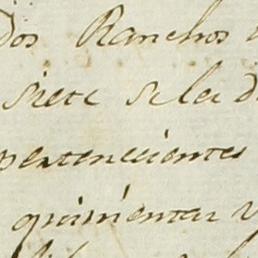 Dos Ranchos
siete se le d
pertenecientes
quinientas y